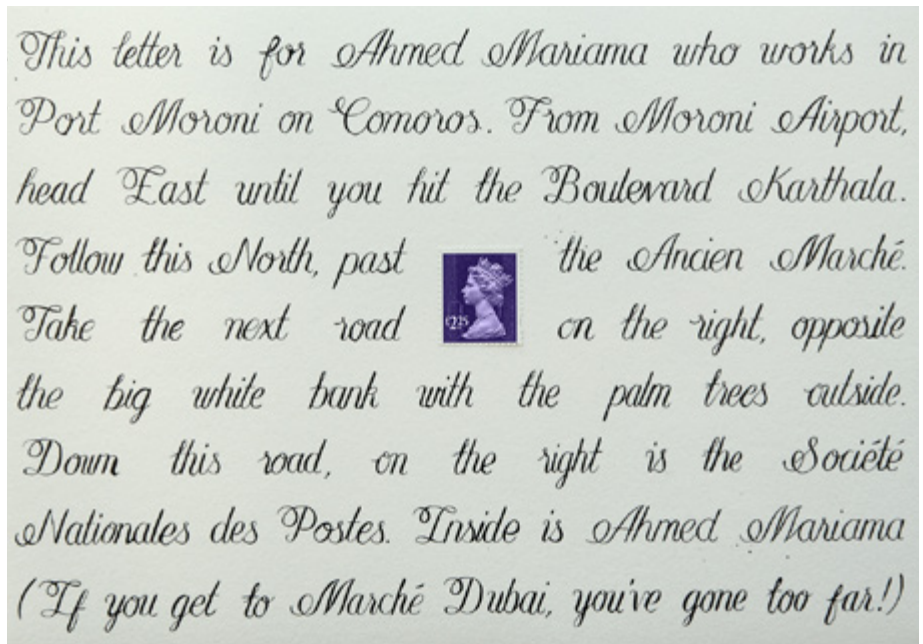 This letter is for Ahmed Mariama who works in
Port Moroni on Comoros. From Moroni Airport,
head East until you hit the Boulevard Karthala.
Follow this North, past the Ancien Marché.
Take the next road on the right, opposite
the big white bank with the palm trees outside.
Down this road, on the right is the Société
Nationales des Postes. Inside is Ahmed Mariama
(If you get to Marché Dubai, you've gone too far!)